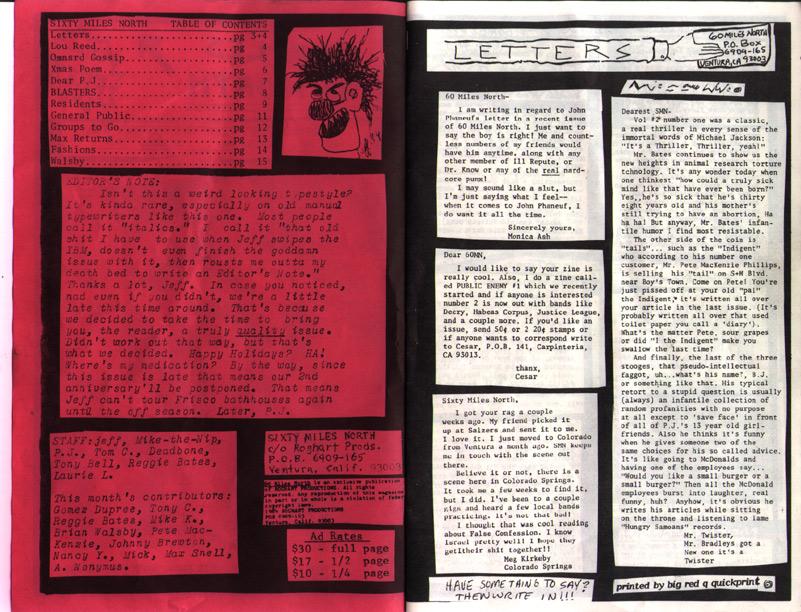 SIXTY MILES NORTH TABLE OF CONTENTS
Letters..........................pg 3+4
Lou Reed.........................pg 4
Omnard Gossip....................pg 5
Xmas Poem........................pg 6
Dear P.J.........................pg 7
BLASTERS.........................pg 8
Residents........................pg 9
General Public...................pg 11
Groups to Go.....................pg 12
Max Returns......................pg 13
Fashions.........................pg 14
Walsby...........................pg 15
EDITOR'S NOTE:
Isn't this a weird looking typestyle?
It's kinda rare, especially on old manual
typewriters like this one. Most people
call it "italics." I call it "that old
shit I have to use when Jeff swipes the
IBM, doesn't even finish the goddamn
issue with it, then rousts me outta my
death bed to write an Editor's Note."
Thanks a lot, Jeff. In case you noticed,
nad even if you didn't, we're a little
late this time around. That's because
we decided to take the time to bring
you, the reader, a truly quality issue.
Didn't work out that way, but that's
what we decided. Happy Holidays? HA!
Where's my medication? By the way, since
this issue is late that means our 2nd
anniversary'll be postponed. That means
Jeff can't tour Frisco bathhouses again
until the off season. Later, P.J.
STAFF: Jeff, Mike-the-Nip,
P.J., Tom C., Deadbone,
Tony Bell, Reggie Bates,
Laurie L.
This month's contributors:
Gomez Dupree, Tony C.,
Reggie Bates, Mike K.,
Brian Walsby, Pete Mac-
Kenzie, Johnny Brewton,
Nancy Y., Mick, Max Snell,
A. Nonymus.
SIXTY MILES NORTH
c/o Roghart Prods.
P.O.B. 6909-165
Ventura, Calif. 93003
60 Miles North is an exclusive publication
of ROGHART PRODUCTIONS. All rights
reserved. Any reproduction of this magazine
in part or in whole is a violation of federal
copyright laws.
ROGHART PRODUCTIONS
POB 6909-165
Ventura, Calif. 93003
Ad Rates
$30 - full page
$17 - 1/2 page
$10 - 1/4 page
LETTERS
60 MILES NORTH
P.O. Box
6909-165
VENTURA, CA 93003
60 Miles North-
I am writing in regard to John
Phaneufs letter in a recent issue
of 60 Miles North. I just want to
say the boy is right! Me and count-
less numbers of my friends would
have him anytime, along with any
other member of Ill Repute, or
Dr. Know or any of the real hard-
core punx!
I may sound like a slut, but
I'm just saying what I feel--
when it comes to John Phaneuf, I
do want it all the time.
Sincerely yours,
Monica Ash
Dear 60MN,
I would like to say your zine is
really cool. Also, I do a zine cal-
led PUBLIC ENEMY #1 which we recently
started and if anyone is interested
number 2 is now out with bands like
Decry, Habeas Corpus, Justice League,
and a couple more. If you'd like an
issue, send 50¢ or 2 20¢ stamps or
if anyone wants to correspond write
to Cesar, P.O.B. 141, Carpinteria,
CA 93013.
thanx,
Cesar
Sixty Miles North,
I got your rag a couple
weeks ago. My friend picked it
up at Salzers and sent it to me.
I love it. I just moved to Colorado
from Ventura a month ago. SMN keeps
me in touch with the scene out
there.
Believe it or not, there is a
scene here in Colorado Springs.
It took me a few weeks to find it,
but I did. I've been to a couple
gigs and heard a few local bands
practicing. It's not that bad!
I thought that was cool reading
about False Confession. I know
Israel pretty well! I hope they
get their shit together!!
Meg Kirkeby
Colorado Springs
HAVE SOMETHING TO SAY?
THEN WRITE IN!!!
Dearest SMN-
Vol #2 number one was a classic,
a real thriller in every sense of the
immortal words of Michael Jackson:
"It's a Thriller, Thriller, yeah!"
Mr. Bates continues to show us the
new heights in animal research torture
technology. It's any wonder today when
one thinkest "how could a truly sick
mind like that have ever been born?"
Yes,,he's so sick that he's thirty
eight years old and his mother's
still trying to have an abortion, Ha
ha ha! But anyway, Mr. Bates' infan-
tile humor I find most resistable.
The other side of the coin is
"tails"... such as the "Indigent"
who according to his number one
customer, Mr. Pete MacKenzie Phillips,
is selling his "tail" on S+M Blvd.
near Boy's Town. Come on Pete! You're
just pissed off at your old "pal"
the Indigent, it's written all over
your article in the last issue. (it's
probably written all over that used
toilet paper you call a 'diary').
What's the matter Pete, sour grapes
or did "I the Indigent" make you
swallow the last time?
And finally, the last of the three
stooges, that pseudo-intellectual
faggot, uh...what's his name?, B.J.
or something like that. His typical
retort to a stupid question is usually
(always) an infantile collection of
random profanities with no purpose
at all except to 'save face' in front
of all of P.J.'s 13 year old girl-
friends. Also he thinks it's funny
when he gives someone two of the
same choices for his so called advice.
It's like going to McDonalds and
having one of the employees say...
"Would you like a small burger or a
small burger?" Then all the McDonald
employees burst into laughter, real
funny, huh? Anyhow, it's obvious he
writes his articles while sitting
on the throne and listening to lame
"Hungry Samoans" records.
Mr. Twister,
Mr. Bradleys got a
New one it's a
Twister
printed by big red q quickprint